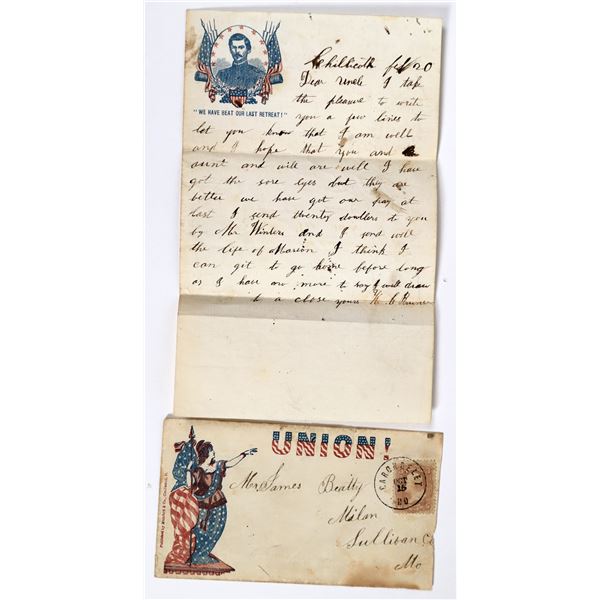 Chillicoth feb 20
"WE HAVE BEAT OUR LAST RETREAT!"
Dear Uncle I tak
the pleasure to writ
you a few lines to
let you know that I am well
and I hope that you and
aunt and wile are well I have
got the sore eyes but they are
better we have got our pay at
last I send twenty dowllers to you
by Mr Winters and I send will
the life of Marion I think I
can git to go home before long
as I have no more to say I will draw
to a close yours
UNION!
Mr James Beatty
Milan
Sullivan Co
Mo
CARONDELET
OCT
15
MO